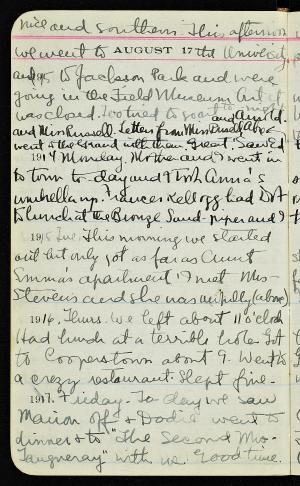 nice and southern. This afternoon
we went to AUGUST 17 the University
and to Jackson Park and were
going in the Field Museum but it
was closed. Too tired to
and Miss Russell. Letters from Miss and Arnold
went to the Grand with them. Great! Saw Ed
1914 Monday. Mother and I went in
to town to-day and took Anna's
umbrella up. Frances Kellogg had Dot
to lunch at the Bronze Sand-piper and I
1915 Tue. This morning we started
out but only got as far as Aunt
Emma's apartment. I met Mrs
Stevens and she was (above)
1916. Thurs. We left about 11 o'clock
Had lunch at a terrible hole. Got
to Cooperstown about 9. Went to
a crazy restaurant. Slept fine.
1917. Friday. To-day we saw
Marion off & Dodie went to
dinner & to "The Second Mrs.
Tanqueray" with us. Good time.